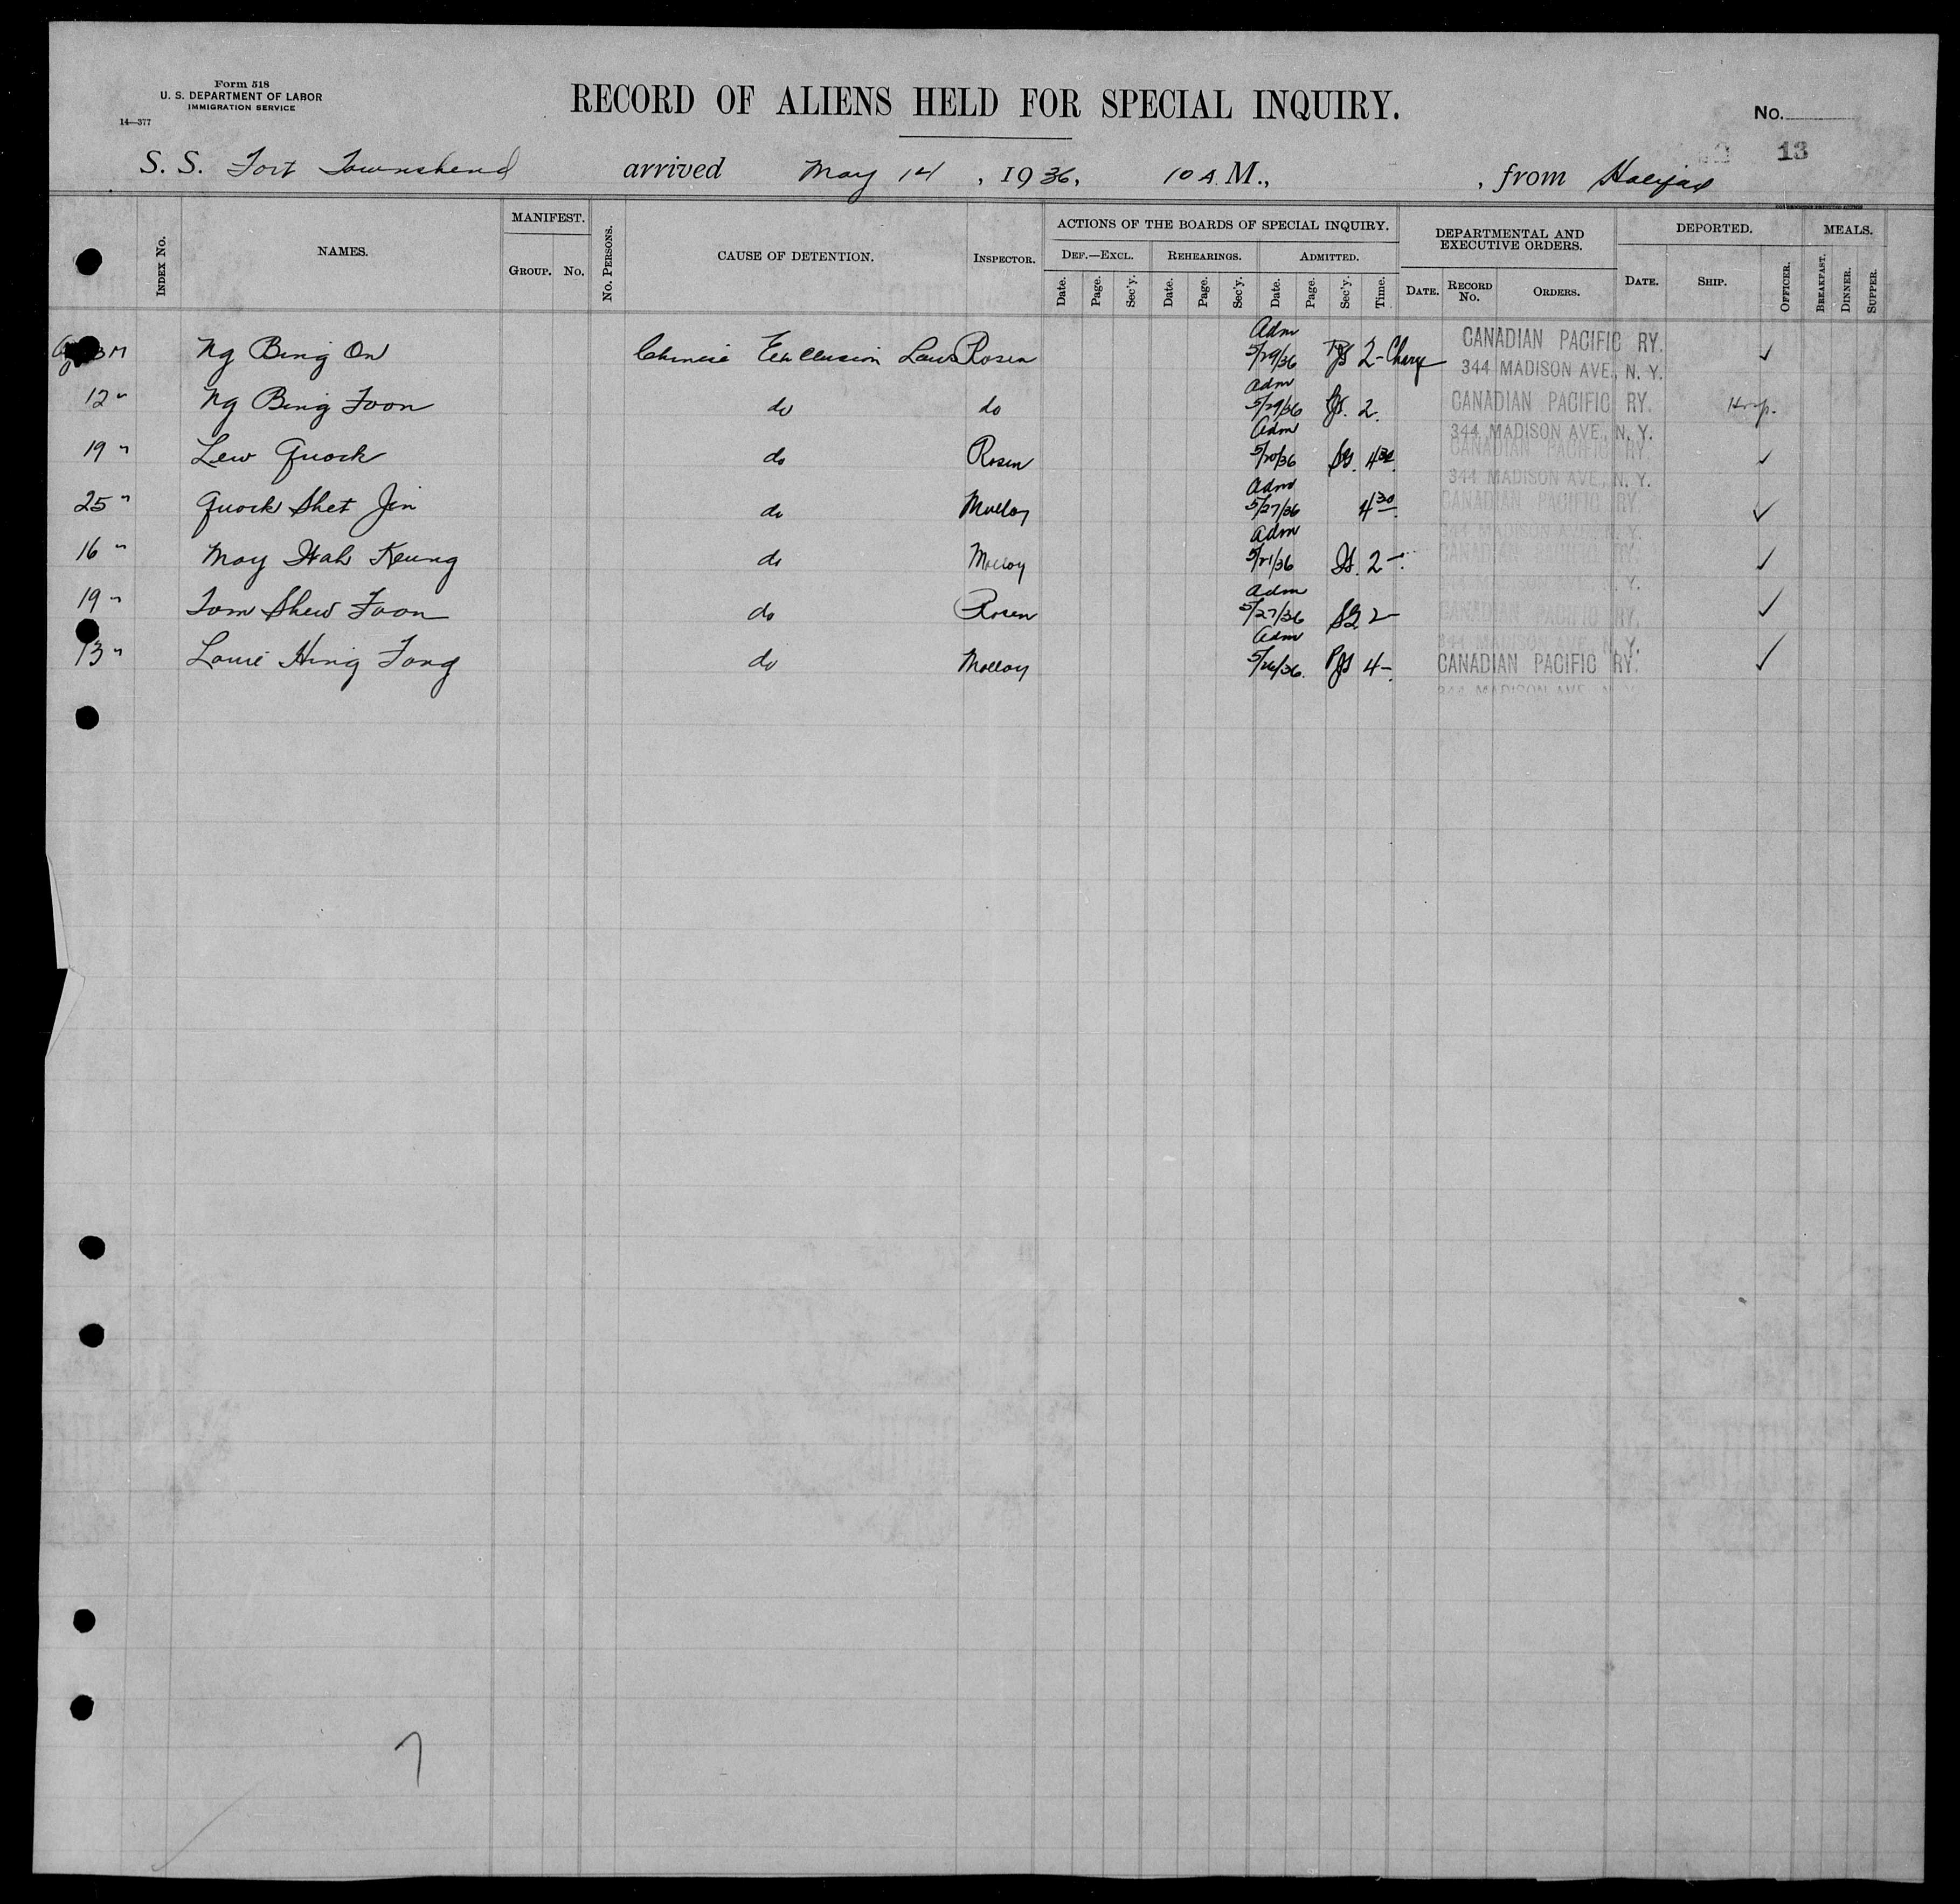 Form 518
U. S. DEPARTMENT OF LABOR
IMMIGRATION SERVICE
14—377
RECORD OF ALIENS HELD FOR SPECIAL INQUIRY.
No.
13
S. S. Fort Townshend arrived May 14, 1936, 10 A. M., , from Halifax
INDEX No. NAMES. MANIFEST. GROUP. No. No. PERSONS. CAUSE OF DETENTION. INSPECTOR. ACTIONS OF THE BOARDS OF SPECIAL INQUIRY. DEPARTMENTAL AND EXECUTIVE ORDERS. DEPORTED. MEALS.
DEF.—EXCL. REHEARINGS. ADMITTED.
Date. Page. Sec'y. Date. Page. Sec'y. Date. Page. Sec'y. Time. DATE. RECORD No. ORDERS. DATE. SHIP. OFFICER. BREAKFAST. DINNER. SUPPER.
M Ng Bing On Chinese Exclusion Law Rosen Adm 5/29/36 2- CANADIAN PACIFIC RY. ✓
344 MADISON AVE., N. Y.
12 " Ng Bing Foon do do Adm 5/29/36 2 CANADIAN PACIFIC RY. Hosp.
344 MADISON AVE., N. Y.
19 " Lew Quock do Rosen Adm 5/20/36 4 30 CANADIAN PACIFIC RY. ✓
344 MADISON AVE., N. Y.
25 " Quock Shet Jin do Molloy Adm 5/27/36 4 30 CANADIAN PACIFIC RY. ✓
344 MADISON AVE., N. Y.
16 " Moy Wah Keung do Molloy Adm 5/21/36 2- CANADIAN PACIFIC RY. ✓
19 " Tom Shew Foon do Rosen Adm 5/27/36 2- CANADIAN PACIFIC RY. ✓
344 MADISON AVE., N. Y.
13 " Louie Hing Fong do Molloy Adm 5/26/36. 4- CANADIAN PACIFIC RY. ✓
344 MADISON AVE., N. Y.
7